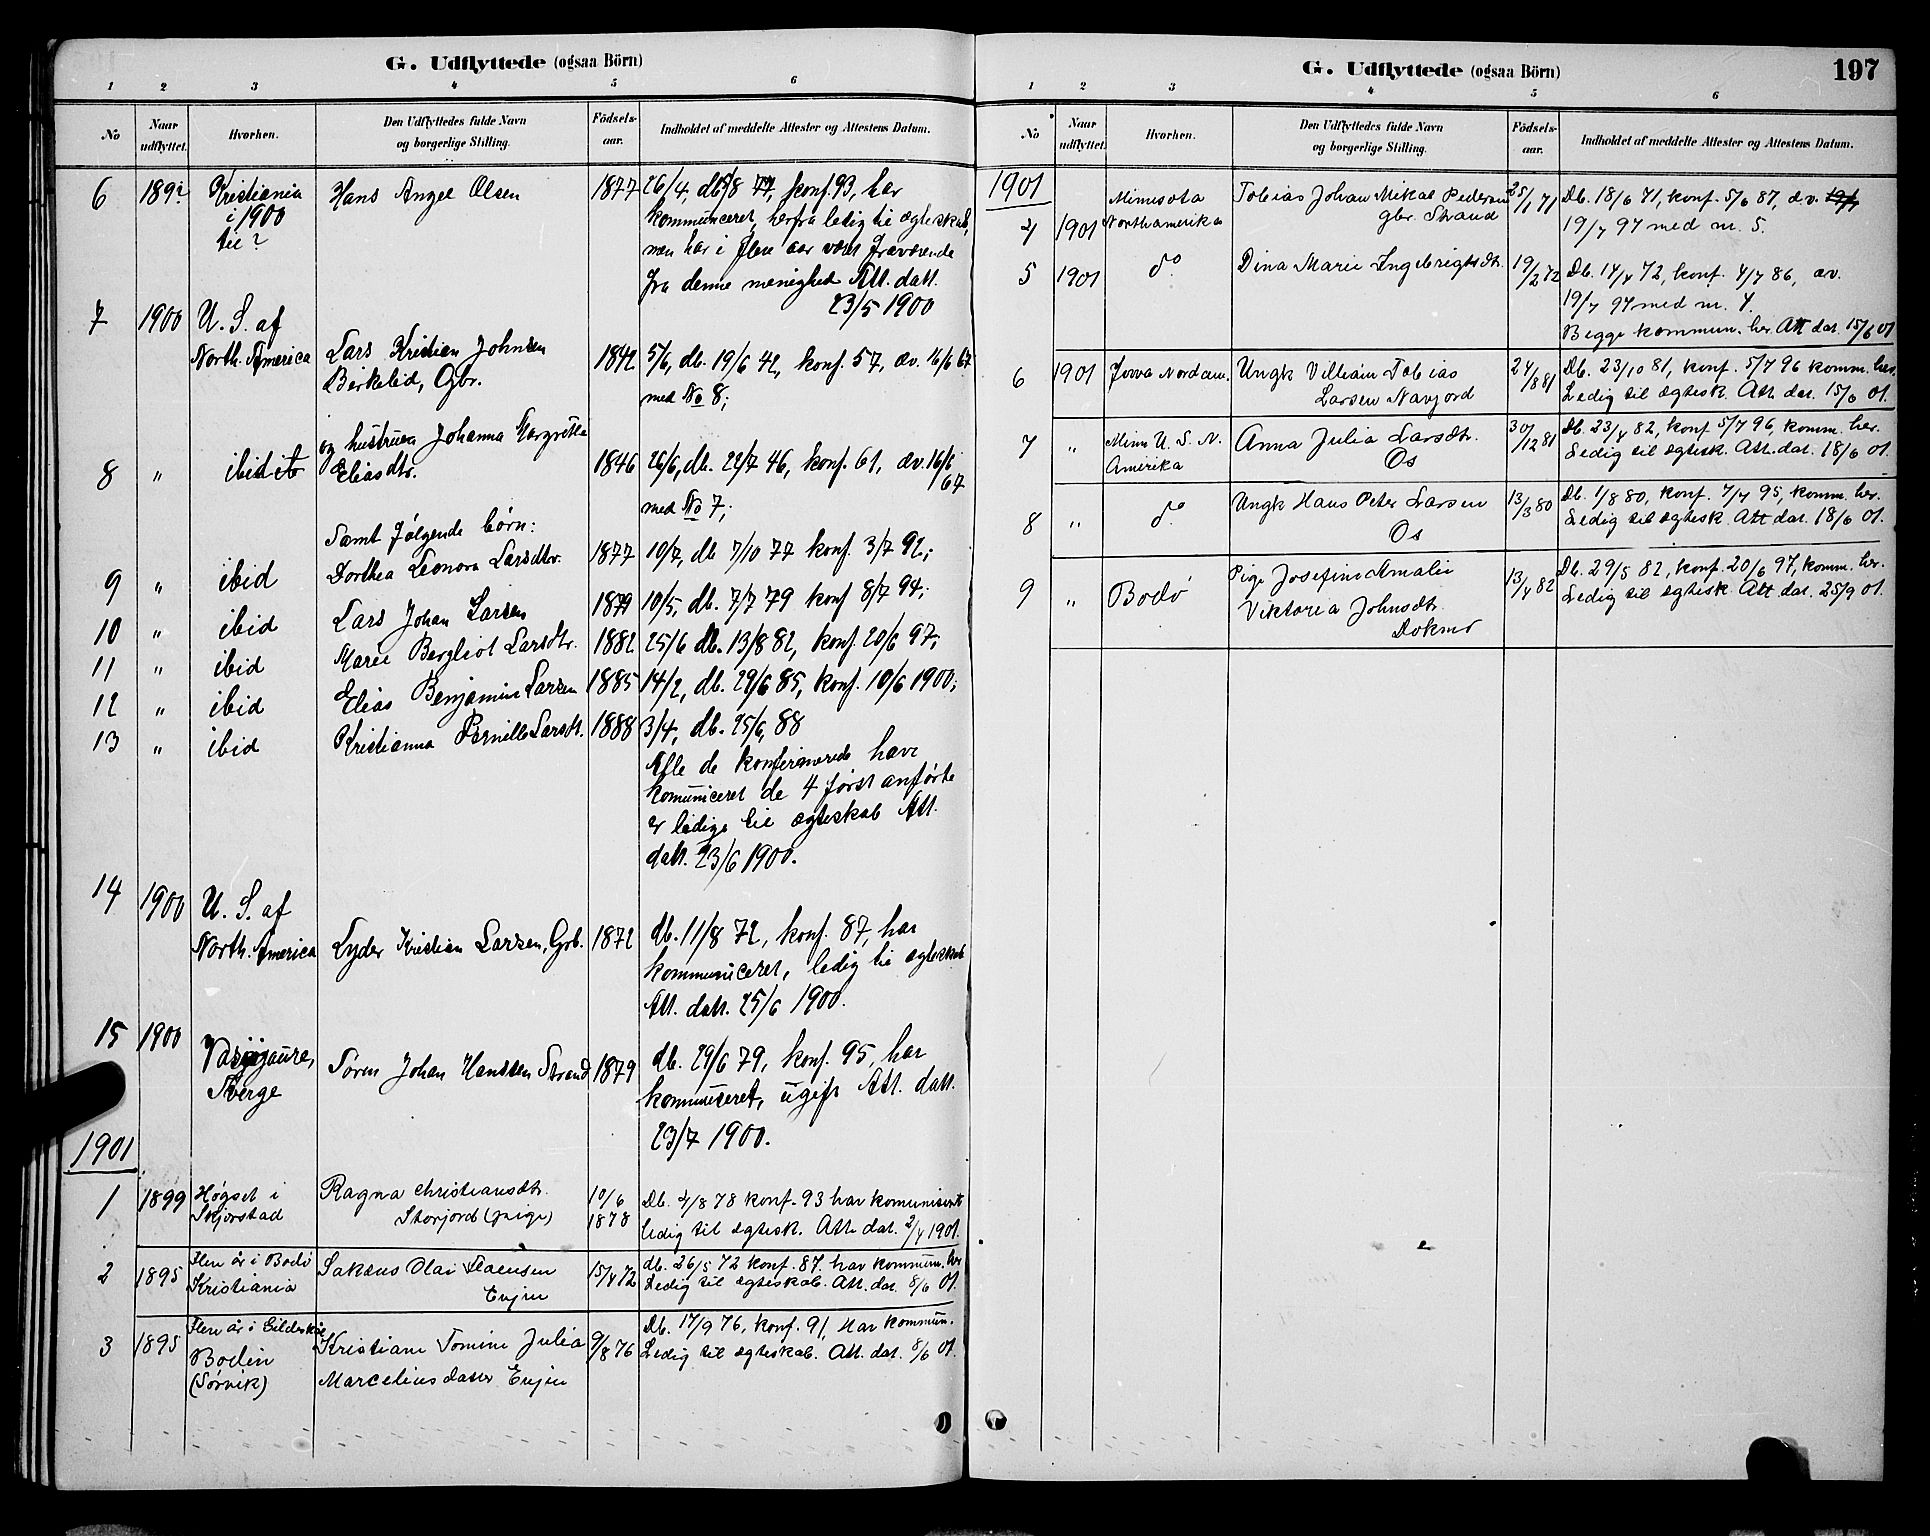 G. Udflyttede (ogsaa Börn)
1 2 3 4 5 6
No Naar udflyttet. Hvorhen. Den Udflyttedes fulde Navn og borgerlige Stilling. Födsels-aar. Indholdet af meddelte Attester og Attestens Datum.
6 189? Kristiania Hans Angel Olsen 1877 26/4, db. 5/8 77, konf. 93, har
i 1900 kommunceret, herfra ledig til ægteskab,
til? men har i flere aar været fraværende
fra denne menighed Att. datt.
23/5 1900
7 1900 U. S. af
North. America Lars Kristian Johnsen 1842 5/6, db. 19/6 42, konf. 57, av. 16/6 67
Birkelid, Gbr. med No 8;
og hustruen Johanna Margrethe
8 " ibid Eliasdtr. 1846 26/6, db. 22/7 46, konf. 61, av. 16/6 67
med No 7;
Samt følgende børn:
9 " ibid Dorthea Leonora Larsdtr. 1877 10/7, db 7/10 77 konf. 3/7 92;
10 " ibid Lars Johan Larsen 1879 10/5, db. 7/7 79 konf 8/7 94;
11 " ibid Marie Bergliot Larsdtr. 1882 25/6 db. 13/8 82, konf. 20/6 97;
12 " ibid Elias Benjamin Larsen 1885 14/2, db. 29/6 85, konf. 10/6 1900;
13 " ibid Kristianna Pernille Larsdt. 1888 3/4, db. 25/6, 88
Alle de konfirmerede have
komuniceret de 4 først anførte
er ledige til ægteskab Att.
datt. 23/6 1900.
14 1900 U. S. af
North. America Lyder Kristian Larsen, Grb. 1872 db. 11/8 72, konf. 87, har
kommuniceret, ledig til ægteskab
Att. datt. 25/6 1900.
15 1900 Vasijaure, Søren Johan Hanssen Strand 1879 db. 29/6 79, konf. 95, har
kommuniceret, ugift Att. datt.
23/7 1900.
1901
1 1899 Høgset i Ragna Christiansdtr. 10/6 Db. 4/8 78 konf. 93 har komunisert
Skjerstad Storjord (pige) 1878 Ledig til ægtesk. Att. dat. 2/4 1901.
2 1895 Flere år i Bodø Sakæus Olai 15/4 72 db. 26/5 72 konf. 87. har kommun. her
Kristiania Evjen Ledig til ægteskab. Att. dat. 8/6 01.
3 1895 Flere år i Gildeskål Kristiane Tomine Julia 9/8 76 Db. 17/9 76, konf. 91, Har kommun.
Bodin Marceliusdatter Evjen Ledig til ægteskab. Att. dat. 8/6 01.
(Sørvik)
G. Udflyttede (ogsaa Börn) 197
1 2 3 4 5 6
No Naar udflyttet. Hvorhen. Den Udflyttedes fulde Navn og borgerlige Stilling. Födsels-aar. Indholdet af meddelte Attester og Attestens Datum.
1901
4 1901 Minnisota Tobias Johan Mikal Pedersen 25/1 71 Db. 18/6 71, konf. 5/6 87, av.
Northamerika gbr. Strand 19/7 97 med nr. 5.
5 1901 do Dina Marie Ingebrigtsdtr. 19/2 72 Db. 14/4 72, konf. 4/7 86, av.
19/7 97 med nr. 4.
Begge kommun. her. Att dat. 15/6 01
6 1901 Jowa Nordam. Ungk Vilhelm Tobias 24/8 81 Db. 23/10 81, konf. 5/7 96 komm. her.
Larsen Navjord Ledig til ægtesk. Att. dat. 15/6 01.
7 " Minn U. S. N. Anna Julia Larsdtr. 30/12 81 Db. 23/4 82, konf 5/7 96, komm. her.
Amerika Os Ledig til ægtesk. Att. dat. 18/6 01.
8 " do Ungk Hans Peter Larsen 13/3 80 Db. 1/8 80, konf. 7/7 95, komm. her.
Os Ledig til ægtesk. Att dat. 18/6 01.
9 " Bodø Pige Josefine Amalie 13/4 82 Db. 29/5 82, konf. 20/6 97, komm. her.
Viktoria Johnsdtr. Ledig til ægtesk. Att dat. 25/9 01.